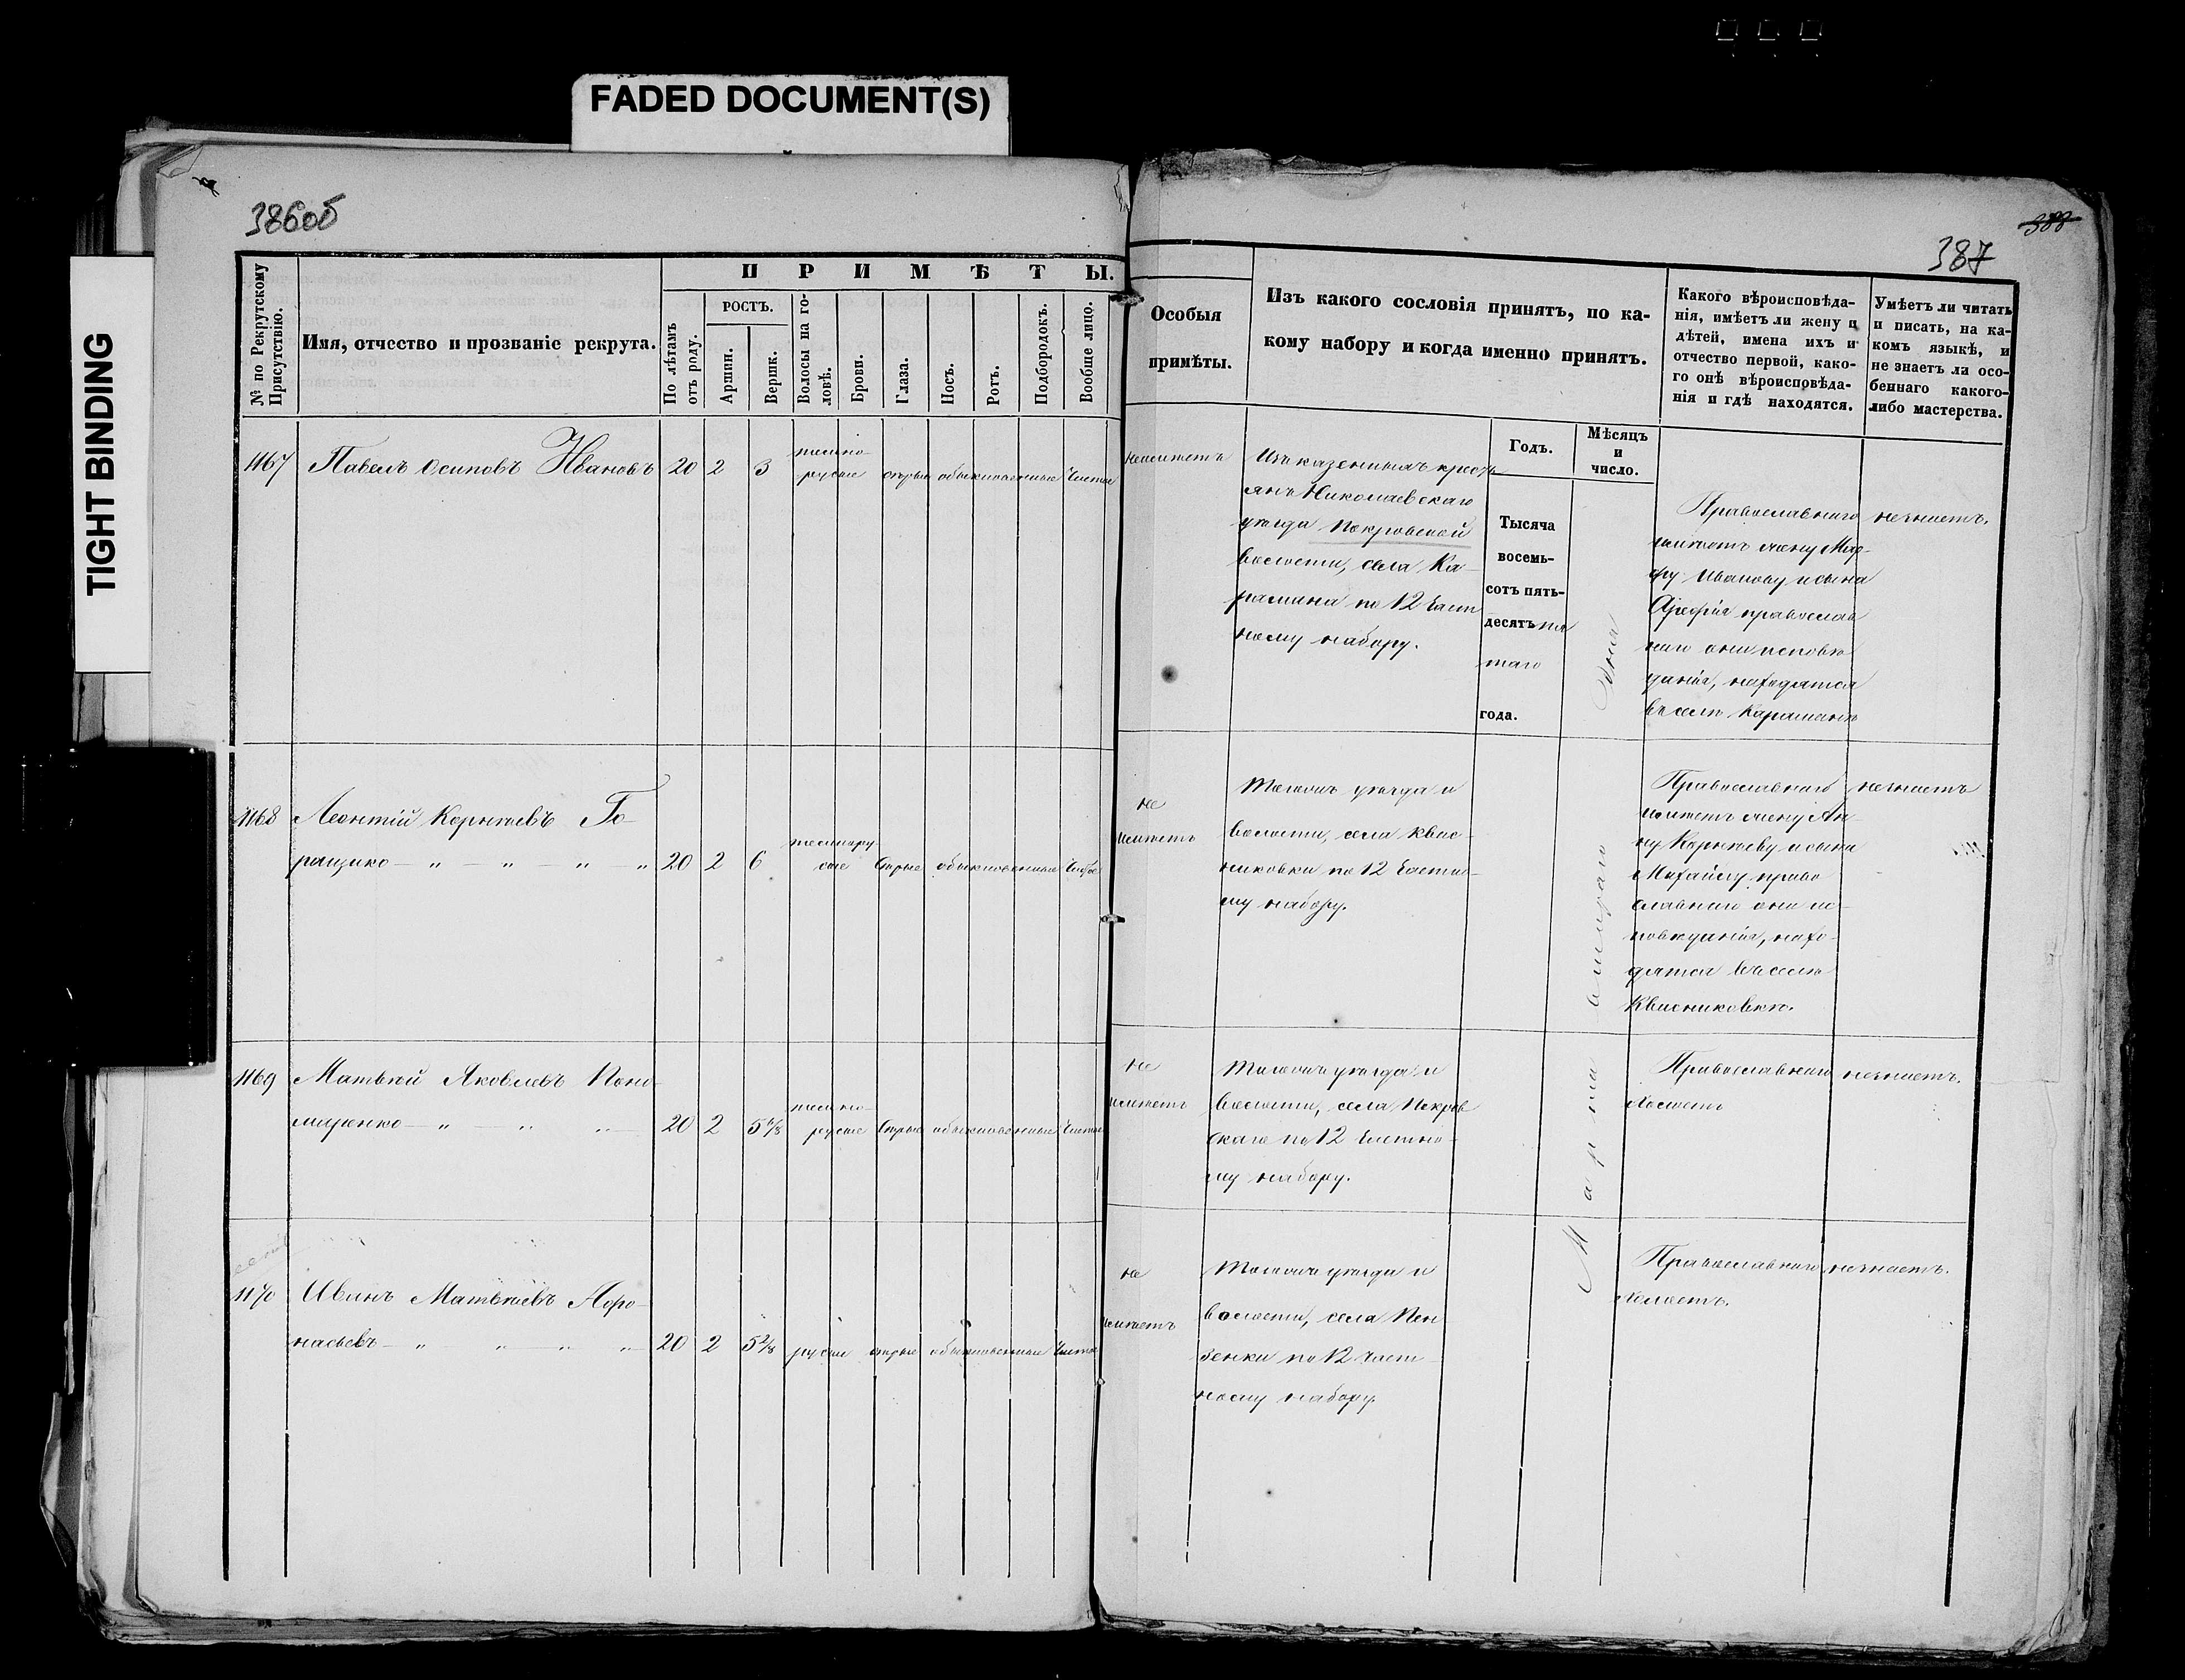 FADED DOCUMENT(S)
TIGHT BINDING
386об
388
387
№ по Рекрутскому Присутствію.
Имя, отчество и прозваніе рекрута.
ПРИМѢТЫ.
По лѣтамъ отъ роду.
РОСТЪ.
Аршин.
Вершк.
Волосы на головѣ.
Брови.
Глаза.
Носъ.
Ротъ.
Подбородокъ.
Вообще лицо.
Особыя
примѣты.
Изъ какого сословія принятъ, по ка-
кому набору и когда именно принятъ.
Какого вѣроисповѣда-
нія, имѣетъ ли жену и
дѣтей, имена ихъ и
отчество первой, како-
го онѣ вѣроисповѣда-
нія и гдѣ находятся.
Умѣетъ ли читать
и писать, на ка-
комъ языкѣ, и
не знаетъ ли осо-
беннаго какого-
либо мастерства.
Годъ.
Мѣсяцъ
и
число.
Тысяча
восемь-
сотъ пять-
десятъ пя
таго
года.
Марта втораго дня
1167 Павелъ Осиповъ Ивановъ 20 2 3 темно-
русые сѣрые обыкновенные Чистое
неимѣетъ
Изъ казенныхъ кресть
янъ Николаевскаго
уѣзда Покровской
волости, села Ка-
рамана по 12 Част
ному набору.
Православнаго
имѣетъ жену Мар-
фу Иванову и сына
Арефія православ
наго они исповѣ
данія, находятся
въ селѣ Караманѣ
незнаетъ.
1168 Леонтій Корнѣевъ Го-
ращико — " — " — " " 20 2 6 темнору-
сые Сѣрые обыкновенные Чистое
не
имѣетъ
Тогожъ уѣзда и
волости, села Квас-
никовки по 12 Частно-
му набору.
Православнаго
имѣетъ жену Ан-
ну Корнѣеву и сына
Михайлу право
славнаго они ис-
повѣданія, нахо-
дятся въ селѣ
Квасниковкѣ.
незнаетъ
1169 Матвѣй Яковлевъ Поно-
маренко — " — " — " — 20 2 5 6/8 темно-
русые Сѣрые обыкновенные Чистое
не
имѣетъ
Тогожъ уѣзда и
волости, села Покров
скаго по 12 Частно-
му набору.
Православнаго
Холостъ
незнаетъ.
1170 Иванъ Матвѣевъ Афо-
насьевъ — " — " — " — " 20 2 5 2/8 русые сѣрые обыкновенные Чистое
не
имѣетъ
Тогожъ уѣзда и
волости, села Пен
зенки по 12 Част-
ному набору.
Православнаго
Холостъ.
незнаетъ.